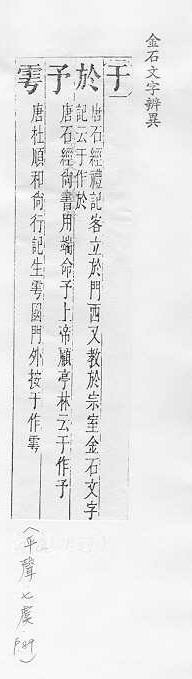 金石文字辨異
于
於
唐石經禮記客立於門西又教於宗室金石文字
記云于作於
予
唐石經尚書用端命予上帝顧亭林云于作予
雩
唐杜順和尚行記生雩國門外按于作雩
(平聲七虞 P.89)